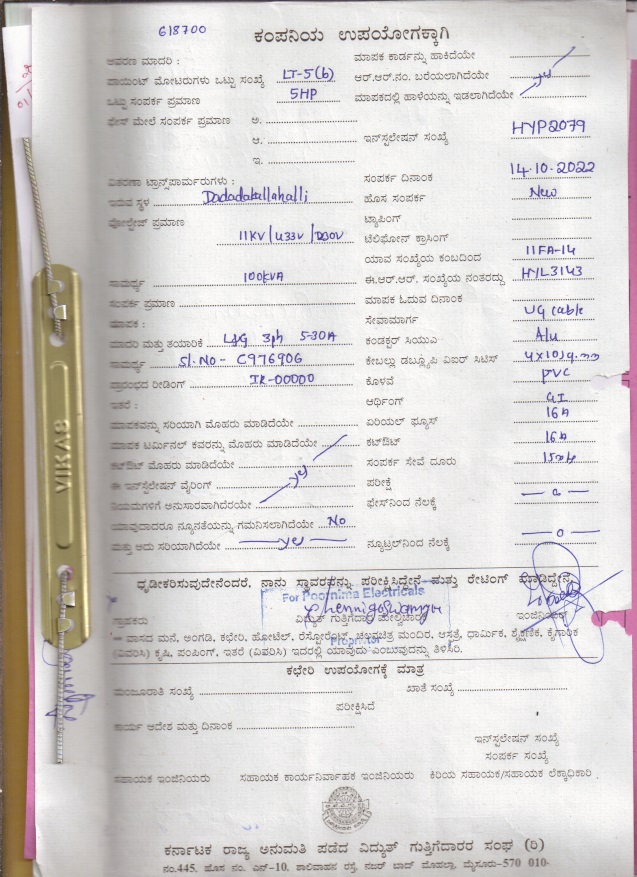 618700
ಕಂಪನಿಯ ಉಪಯೋಗಕ್ಕಾಗಿ
ಆವರಣ ಮಾದರಿ : ಮಾಪಕ ಕಾರ್ಡನ್ನು ಹಾಕಿದೆಯೇ
ಪಾಯಿಂಟ್ ಮೋಟರುಗಳು ಒಟ್ಟು ಸಂಖ್ಯೆ LT-5(b) ಆರ್.ಆರ್.ನಂ. ಬರೆಯಲಾಗಿದೆಯೇ yes
ಒಟ್ಟು ಸಂಪರ್ಕ ಪ್ರಮಾಣ 5HP ಮಾಪಕದಲ್ಲಿ ಹಾಳೆಯನ್ನು ಇಡಲಾಗಿದೆಯೇ
ಫೇಸ್ ಮೇಲೆ ಸಂಪರ್ಕ ಪ್ರಮಾಣ ಅ.
ಆ. ಇನ್‌ಸ್ಟಲೇಷನ್ ಸಂಖ್ಯೆ HYP2079
ಇ.
ವಿತರಣಾ ಟ್ರಾನ್ಸ್‌ಫಾರ್ಮರುಗಳು : ಸಂಪರ್ಕ ದಿನಾಂಕ 14.10.2022
ಇರುವ ಸ್ಥಳ ಹೊಸ ಸಂಪರ್ಕ New
ವೋಲ್ಟೇಜ್ ಪ್ರಮಾಣ ಟ್ಯಾಪಿಂಗ್
11KV/433V/ ಟೆಲಿಫೋನ್ ಕ್ರಾಸಿಂಗ್
ಯಾವ ಸಂಖ್ಯೆಯ ಕಂಬದಿಂದ 11FA-14
ಸಾಮರ್ಥ್ಯ 100KVA ಈ.ಆರ್.ಆರ್. ಸಂಖ್ಯೆಯ ನಂತರದ್ದು HYL3143
ಸಂಪರ್ಕ ಪ್ರಮಾಣ ಮಾಪಕ ಓದುವ ದಿನಾಂಕ
ಮಾಪಕ : ಸೇವಾಮಾರ್ಗ UG cable
ಮಾದರಿ ಮತ್ತು ತಯಾರಿಕೆ L&G 3ph 5-30A ಕಂಡಕ್ಟರ್ ಸಿಯುಎ Alu
ಸಾಮರ್ಥ್ಯ Sl.No- C976906 ಕೇಬಲ್ಲು ಡಬ್ಲ್ಯೂಪಿ ವಿಐಆರ್ ಸಿಟಿಸ್ 4x10sq.mm
ಪ್ರಾರಂಭದ ರೀಡಿಂಗ್ IR-00000 ಕೊಳವೆ PVC
ಇತರೆ : ಆರ್ಥಿಂಗ್ GI
ಮಾಪಕವನ್ನು ಸರಿಯಾಗಿ ಮೊಹರು ಮಾಡಿದೆಯೇ ಏರಿಯಲ್ ಫ್ಯೂಸ್ 16A
ಮಾಪಕ ಟರ್ಮಿನಲ್ ಕವರನ್ನು ಮೊಹರು ಮಾಡಿದೆಯೇ ಕಟ್‌ಔಟ್ 16A
ಕಟ್‌ಔಟ್ ಮೊಹರು ಮಾಡಿದೆಯೇ ಸಂಪರ್ಕ ಸೇವೆ ದೂರು
ಈ ಇನ್‌ಸ್ಟಲೇಷನ್ ವೈರಿಂಗ್ yes ಪರೀಕ್ಷೆ
ನಿಯಮಗಳಿಗೆ ಅನುಸಾರವಾಗಿದೆರಯೇ ಫೇಸ್‌ನಿಂದ ನೆಲಕ್ಕೆ
ಯಾವುದಾದರೂ ನ್ಯೂನತೆಯನ್ನು ಗಮನಿಸಲಾಗಿದೆಯೇ No
ಮತ್ತು ಅದು ಸರಿಯಾಗಿದೆಯೇ yes ನ್ಯೂಟ್ರಲ್‌ನಿಂದ ನೆಲಕ್ಕೆ
ಧೃಡೀಕರಿಸುವುದೇನೆಂದರೆ, ನಾನು ಸ್ಥಾವರವನ್ನು ಪರೀಕ್ಷಿಸಿದ್ದೇನೆ ಮತ್ತು ರೇಟಿಂಗ್ ಮಾಡಿದ್ದೇನೆ
For Poornima Electricals
ಗ್ರಾಹಕರು ವಿದ್ಯುತ್ ಗುತ್ತಿಗೆದಾರ ಮೇಲ್ವಿಚಾರಕ ಇಂಜಿನಿಯರ್
Proprietor
= ವಾಸದ ಮನೆ, ಅಂಗಡಿ, ಕಛೇರಿ, ಹೋಟೆಲ್, ರೆಸ್ಟೋರೆಂಟ್, ಚಲನಚಿತ್ರ ಮಂದಿರ, ಆಸ್ಪತ್ರೆ, ಧಾರ್ಮಿಕ, ಶೈಕ್ಷಣಿಕ, ಕೈಗಾರಿಕ
(ವಿವರಿಸಿ) ಕೃಷಿ, ಪಂಪಿಂಗ್, ಇತರೆ (ವಿವರಿಸಿ) ಇದರಲ್ಲಿ ಯಾವುದು ಎಂಬುವುದನ್ನು ತಿಳಿಸಿರಿ.
ಕಛೇರಿ ಉಪಯೋಗಕ್ಕೆ ಮಾತ್ರ
ಮಂಜೂರಾತಿ ಸಂಖ್ಯೆ ಖಾತೆ ಸಂಖ್ಯೆ
ಪರೀಕ್ಷಿಸಿದೆ
ಕಾರ್ಯ ಆದೇಶ ಮತ್ತು ದಿನಾಂಕ
ಇನ್‌ಸ್ಟಲೇಷನ್ ಸಂಖ್ಯೆ
ಸಂಪರ್ಕ ಸಂಖ್ಯೆ
ಸಹಾಯಕ ಇಂಜಿನಿಯರು ಸಹಾಯಕ ಕಾರ್ಯನಿರ್ವಾಹಕ ಇಂಜಿನಿಯರು ಕಿರಿಯ ಸಹಾಯಕ/ಸಹಾಯಕ ಲೆಕ್ಕಾಧಿಕಾರಿ
ಕರ್ನಾಟಕ ರಾಜ್ಯ ಅನುಮತಿ ಪಡೆದ ವಿದ್ಯುತ್ ಗುತ್ತಿಗೆದಾರರ ಸಂಘ (ರಿ)
ನಂ.445, ಹೊಸ ನಂ. ಎನ್-10, ಶಾಲಿವಾಹನ ರಸ್ತೆ, ನಜರ್ ಬಾದ್ ಮೊಹಲ್ಲಾ, ಮೈಸೂರು-570 010
VIKAS